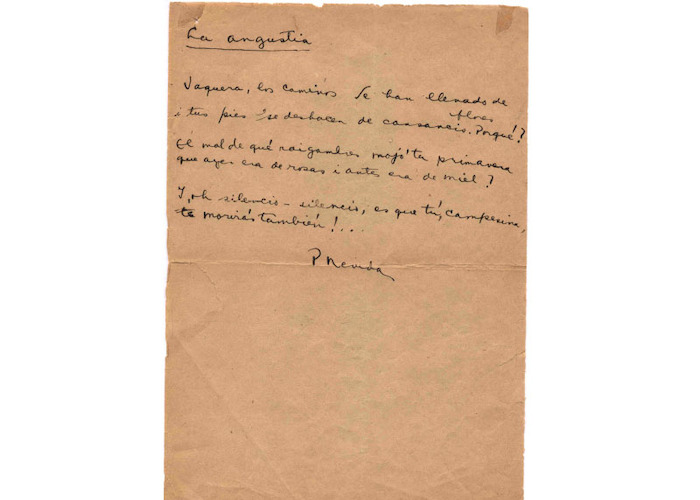 La angustia
Vaquera, los caminos se han llenado de
flores
i tus pies se deshacen de cansancio. Porqué!?
El mal de qué raigambres mojó tu primavera
que ayer era de rosas i antes era de miel?
I, oh silencio - silencio, es que tú, campesina,
te morirás también!...
P Neruda